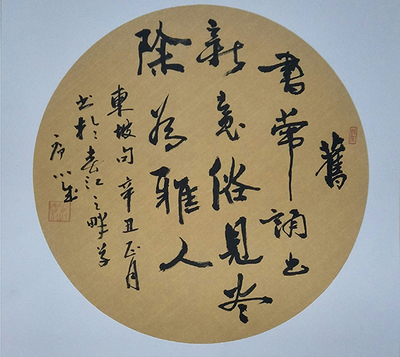 舊
書常誦出
新意俗見尽
除為雅人
東坡句辛丑正月
书於春江之畔